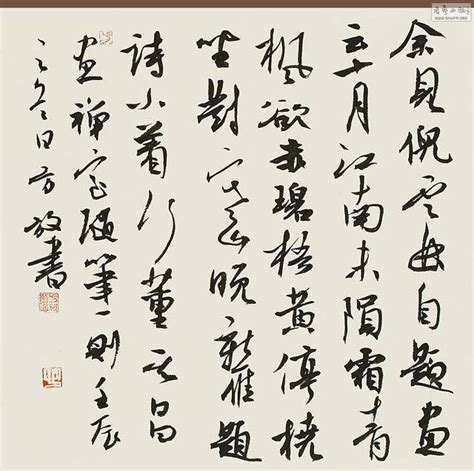 余見倪雲自題畫
云十月江南未隕霜青
楓欲赤碧梧黃停橈
坐對山晚新雁題
詩小著行董其昌
畫禪室隨筆一則壬辰
之冬日方放書